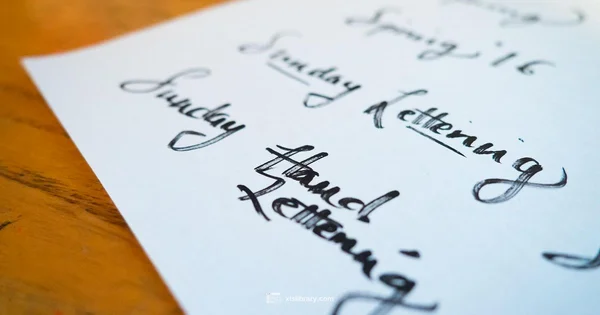 Spring '16
Sunday
Lettering
Sunday
Hand
Lettering